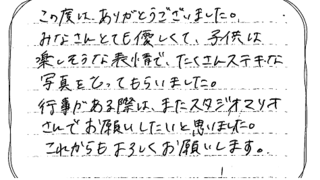 この度は、ありがとうございました。
みなさんとても優しくて、子供は
楽しそうな表情で、たくさんステキな
写真をとってもらいました。
行事がある際は、またスタジオマリオ
さんでお願いしたいと思いました。
これからもよろしくお願いします。